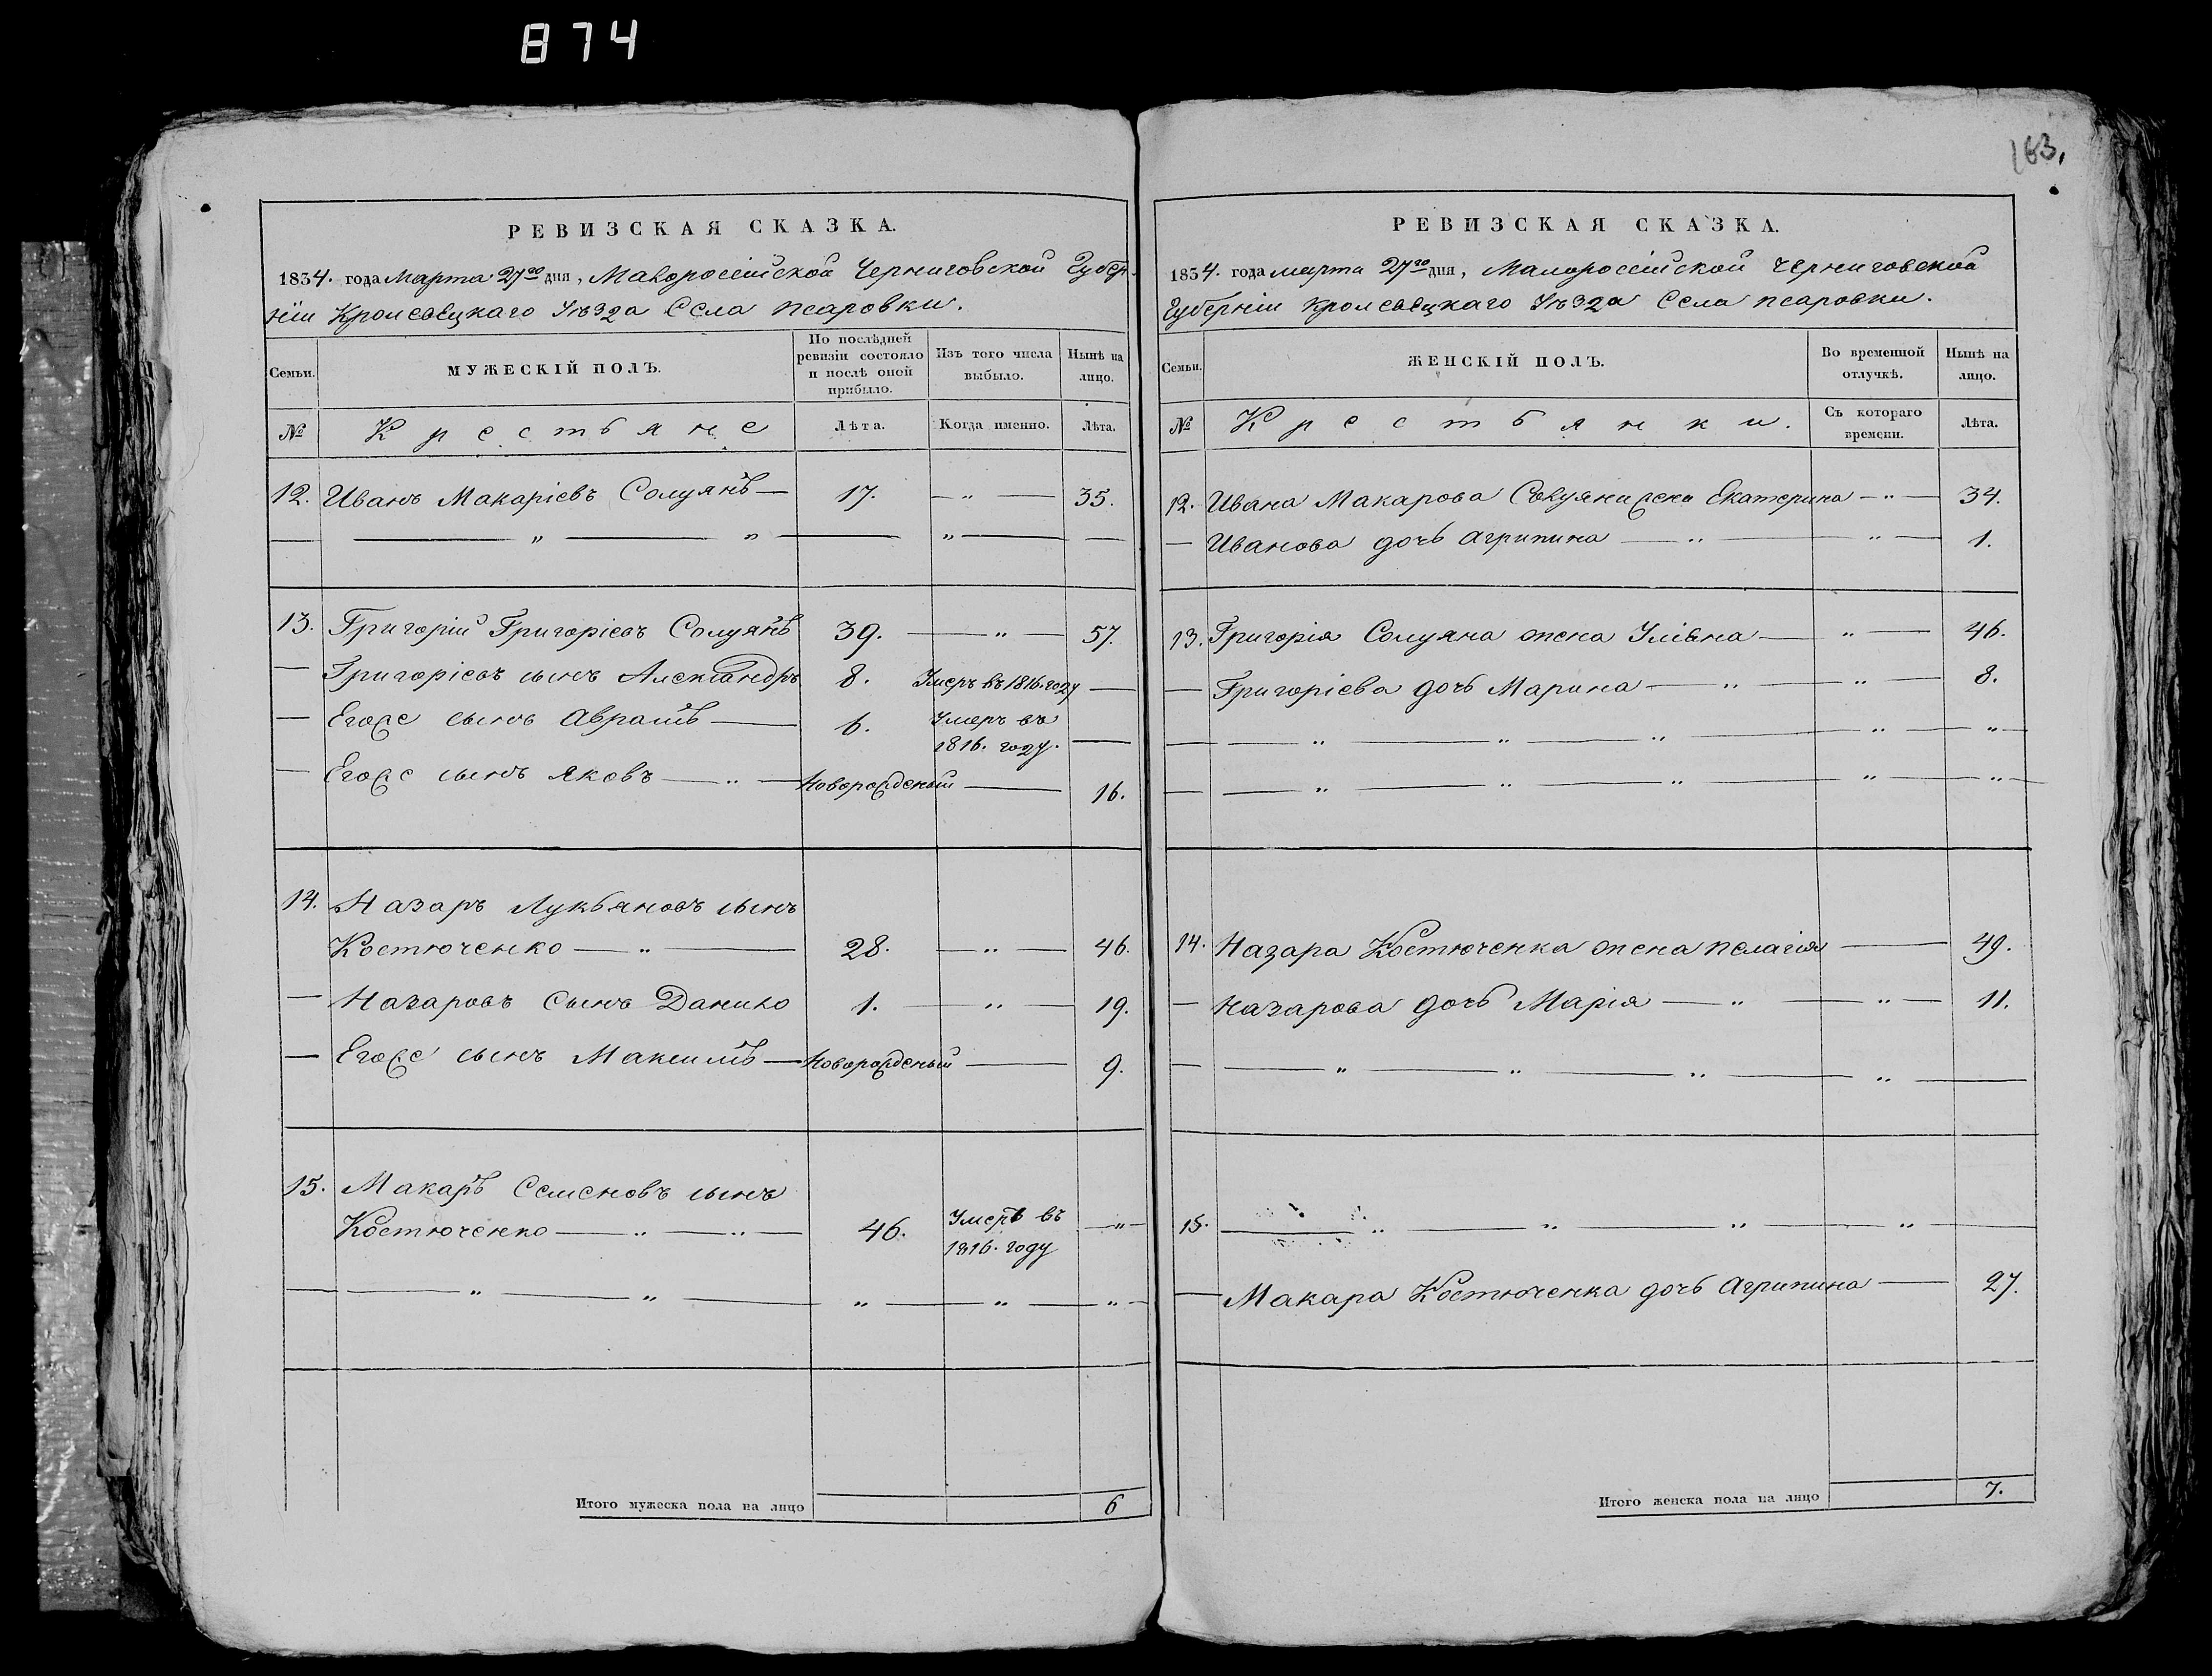 874
163.
РЕВИЗСКАЯ СКАЗКА.
1834. года Марта 27го дня, Малороссійской Черниговской Губер-
ніи Кролевецкаго Уѣзда Села Псаровки.
Семьи.
МУЖЕСКІЙ ПОЛЪ.
По послѣдней ревизіи состояло и послѣ оной прибыло.
Изъ того числа выбыло.
Нынѣ на лицо.
№
Крестьяне
Лѣта.
Когда именно.
Лѣта.
12. Иванъ Макаріевъ Солуянъ — 17. — „ — 35.
— „ — „ — „ —
13. Григорій Григоріевъ Солуянъ 39. — „ — 57.
— Григоріевъ сынъ Александръ 8. Умеръ въ 1816. году —
— Егоже сынъ Аврамъ — 6. Умеръ въ
1816. году. —
— Егоже сынъ Яковъ — „ — Новорожденый — 16.
14. Назаръ Лукьяновъ сынъ
Костюченко — „ — 28. — „ — 46.
— Назаровъ Сынъ Данило 1. — „ — 19.
— Егоже сынъ Максимъ — Новорожденый — 9.
15. Макаръ Семеновъ сынъ
Костюченко — „ — „ — 46. Умеръ въ — „ —
1816. году
— „ — „ — „ — „ — „ —
Итого мужеска пола на лицо 6
РЕВИЗСКАЯ СКАЗКА.
1834. года марта 27го дня, Малороссійской Черниговской
Губерніи Кролевецкаго Уѣзда Села Псаровки.
Семьи.
ЖЕНСКІЙ ПОЛЪ.
Во временной отлучкѣ.
Нынѣ на лицо.
№
Крестьянки.
Съ котораго времени.
Лѣта.
12. Ивана Макарова Солуяна жена Екатерина — „ — 34.
— Иванова дочь Агрипина — „ — „ — 1.
13. Григорія Солуяна жена Уліяна — „ — 46.
— Григоріева дочь Марина — „ — „ — 8.
— „ — „ — „ — „ — „ —
— „ — „ — „ — „ — „ —
14. Назара Костюченка жена Пелагія — 49.
— Назарова дочь Марія — „ — „ — 11.
— „ — „ — „ — „ —
15. — „ — „ — „ — „ —
— Макара Костюченка дочь Агрипина — 27.
Итого женска пола на лицо 7.